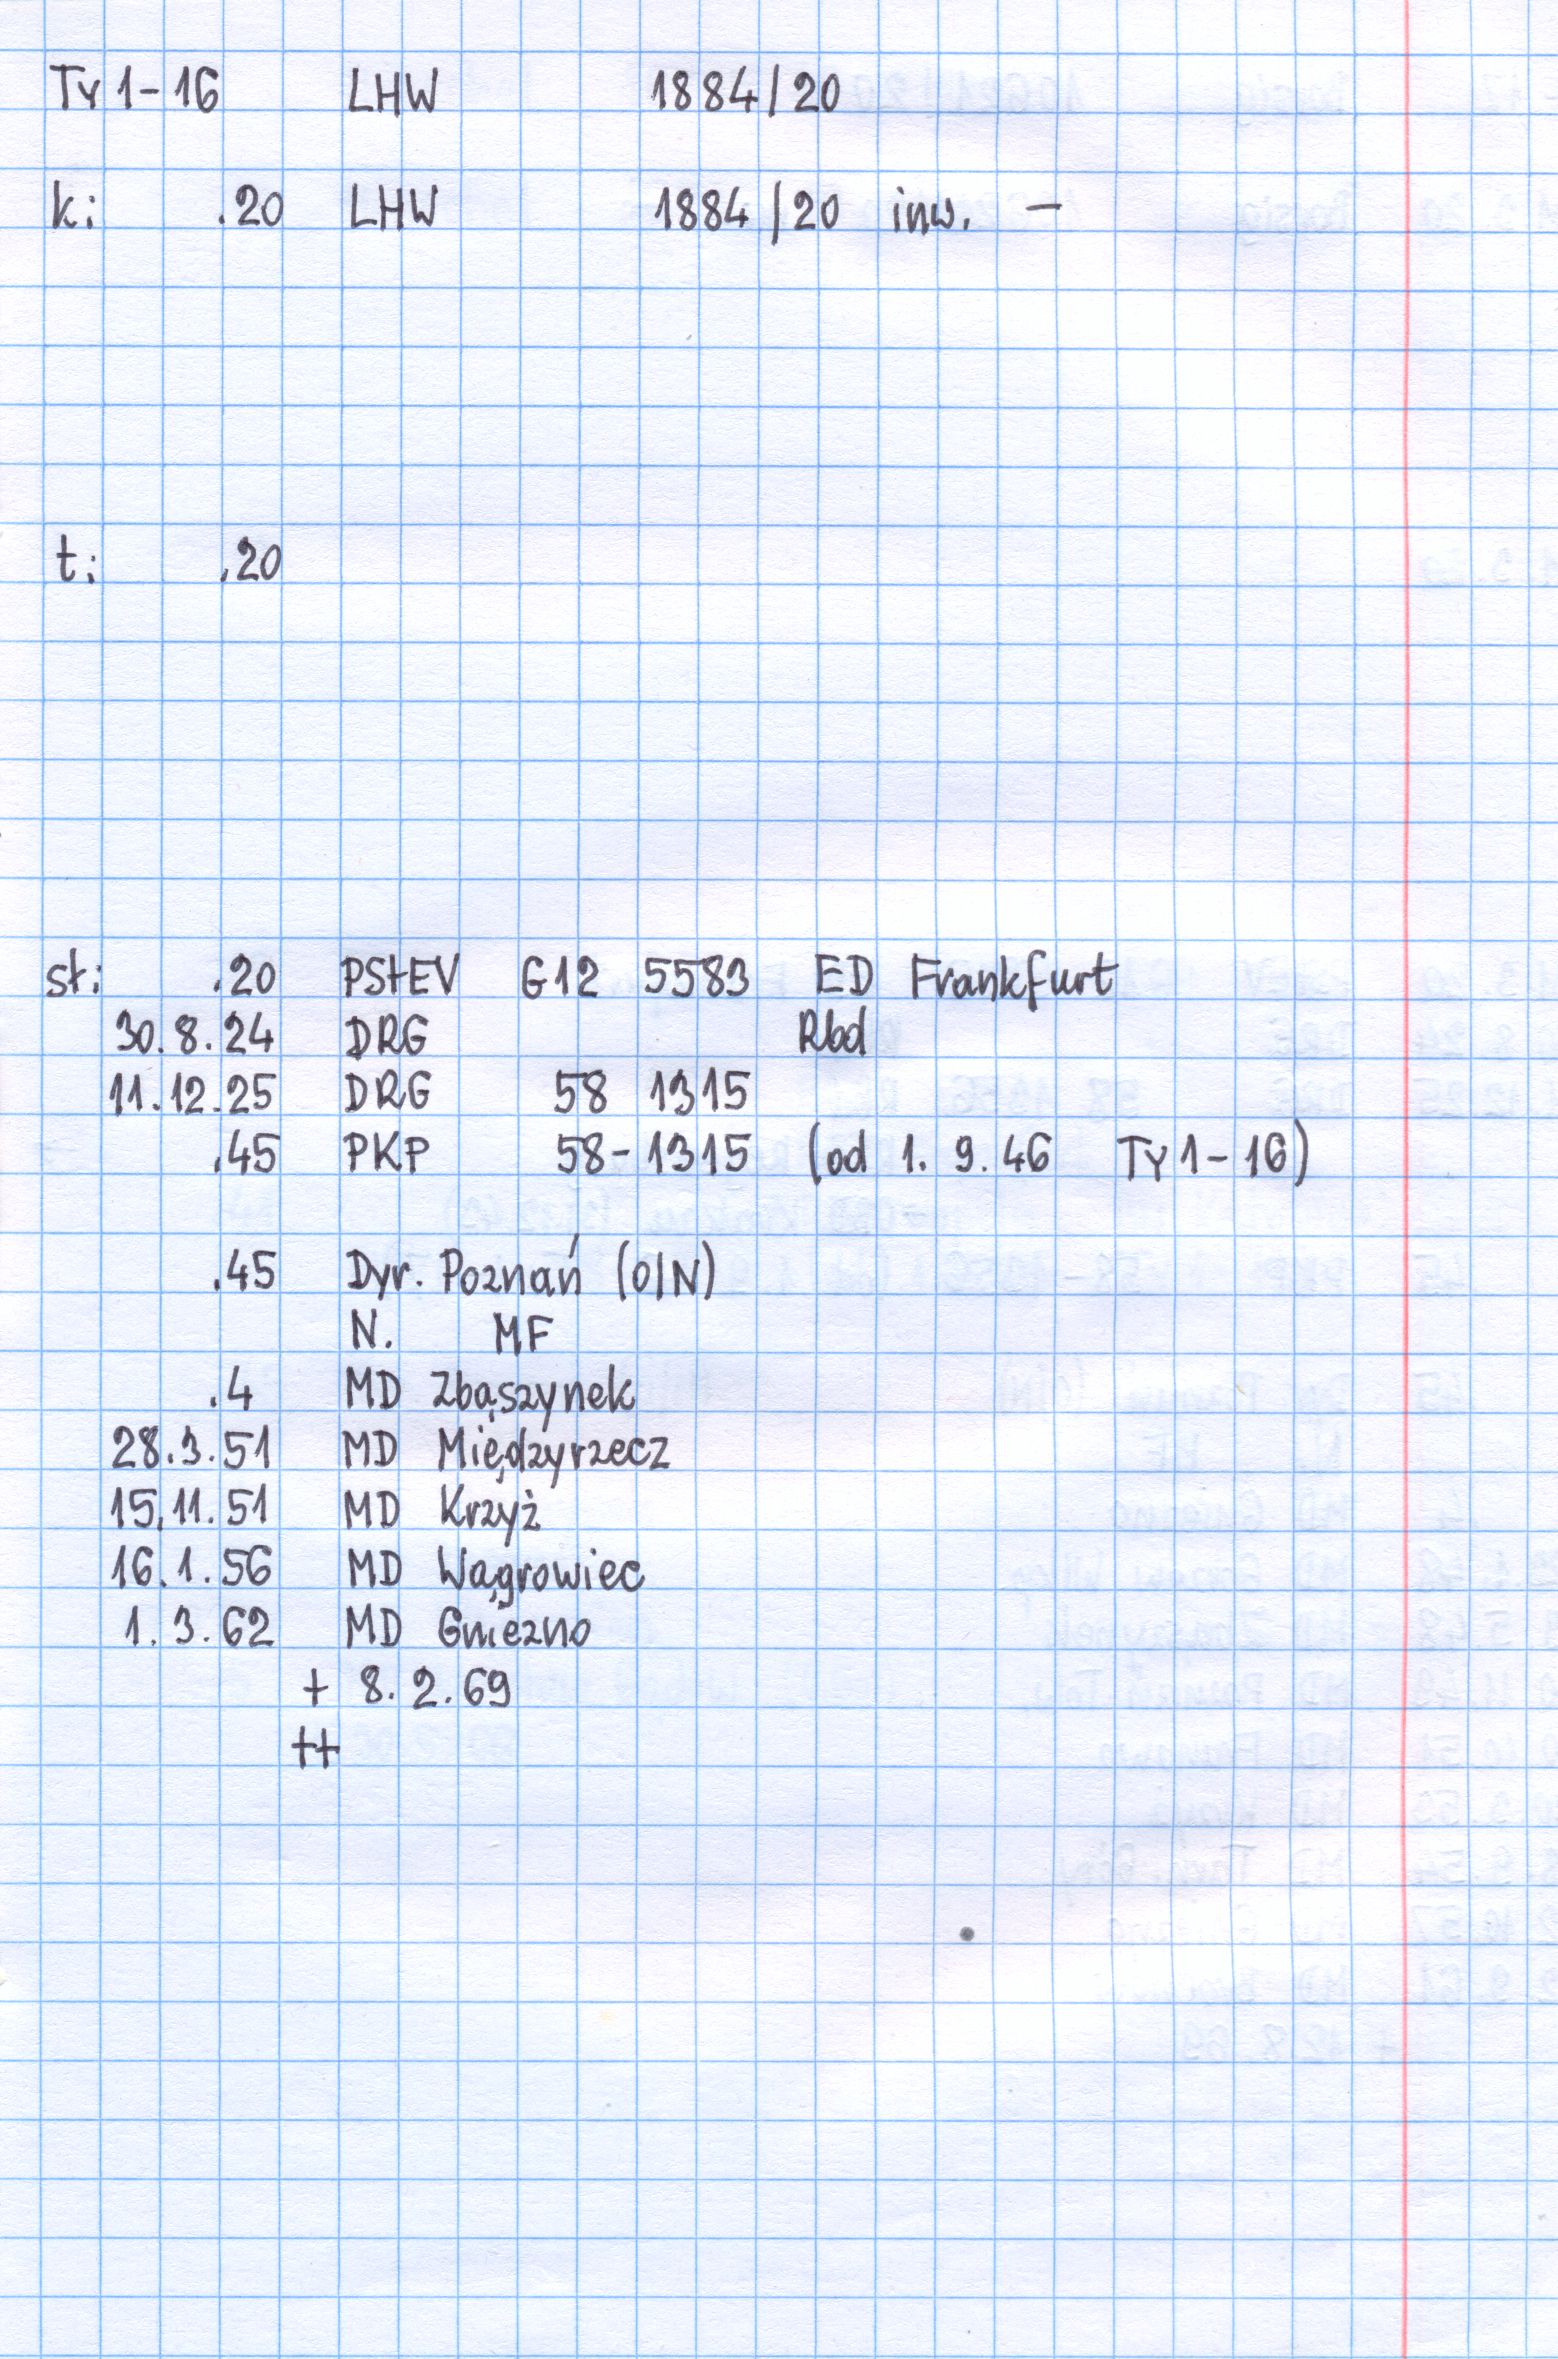 Ty 1-16 LHW 1884/20
k: .20 LHW 1884/20 inw. —
t: .20
st: .20 PStEV G12 5583 ED Frankfurt
30.8.24 DRG Rbd
11.12.25 DRG 58 1315
.45 PKP 58-1315 (od 1.9.46 Ty 1-16)
.45 Dyr. Poznań (O/N)
N. MF
.4 MD Zbąszynek
28.3.51 MD Międzyrzecz
15.11.51 MD Krzyż
16.1.56 MD Wągrowiec
1.3.62 MD Gniezno
+ 8.2.69
++